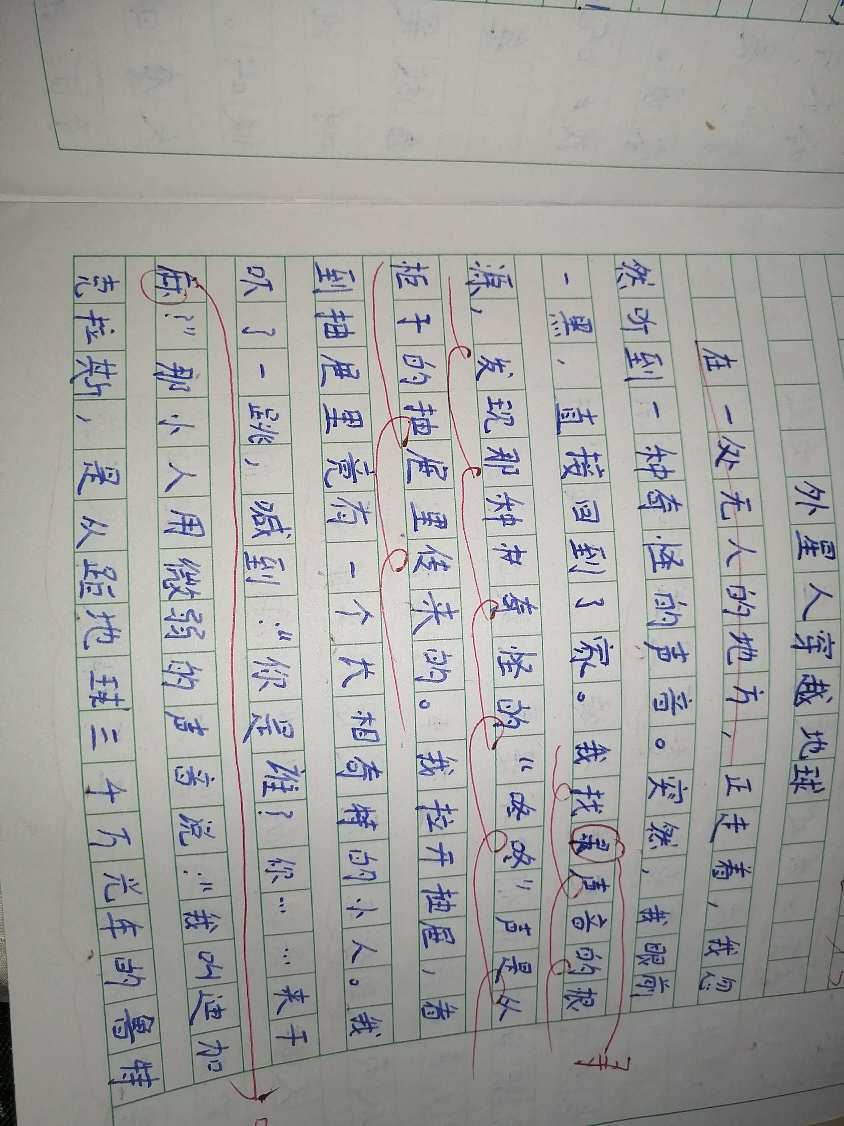 外星人穿越地球
在一处无人的地方,正走着,我忽
然听到一种奇怪的声音。突然,我眼前
一黑,直接回到了家。我找寻声音的根
源,发现那种奇怪的“咚咚”声是从
柜子的抽屉里传来的。我拉开抽屉,看
到抽屉里竟有一个长相奇特的小人。我
吓了一跳,喊到:“你是谁?你……来干
麻?”那小人用微弱的声音说:“我叫迪加
克拉斯,是从距地球三千万光年的鲁特